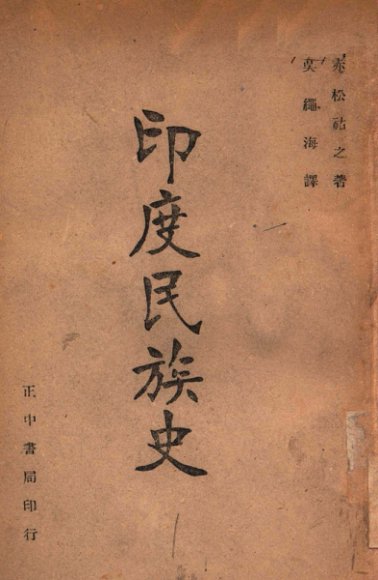 赤松祐之著
吳繩海譯
印度民族史
正中書局印行